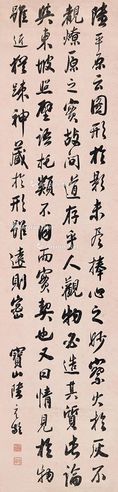 陸平原云圖形於影未盡捧心之妙察火於灰不
覩燎原之實故問道存乎人觀物必造其質此論
與東坡照壁語托類不同而實契也又曰情見於物
雖近猶疎神藏於形雖遠則密
寶山陸